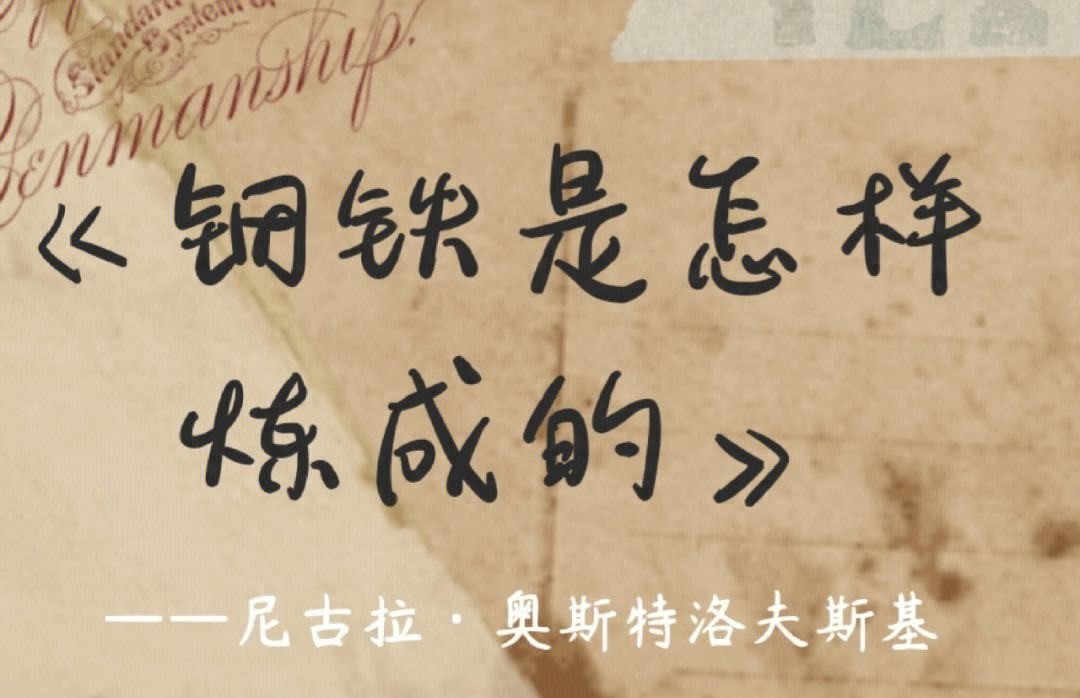 Standard
System of
Penmanship.
《钢铁是怎样
炼成的》
——尼古拉·奥斯特洛夫斯基